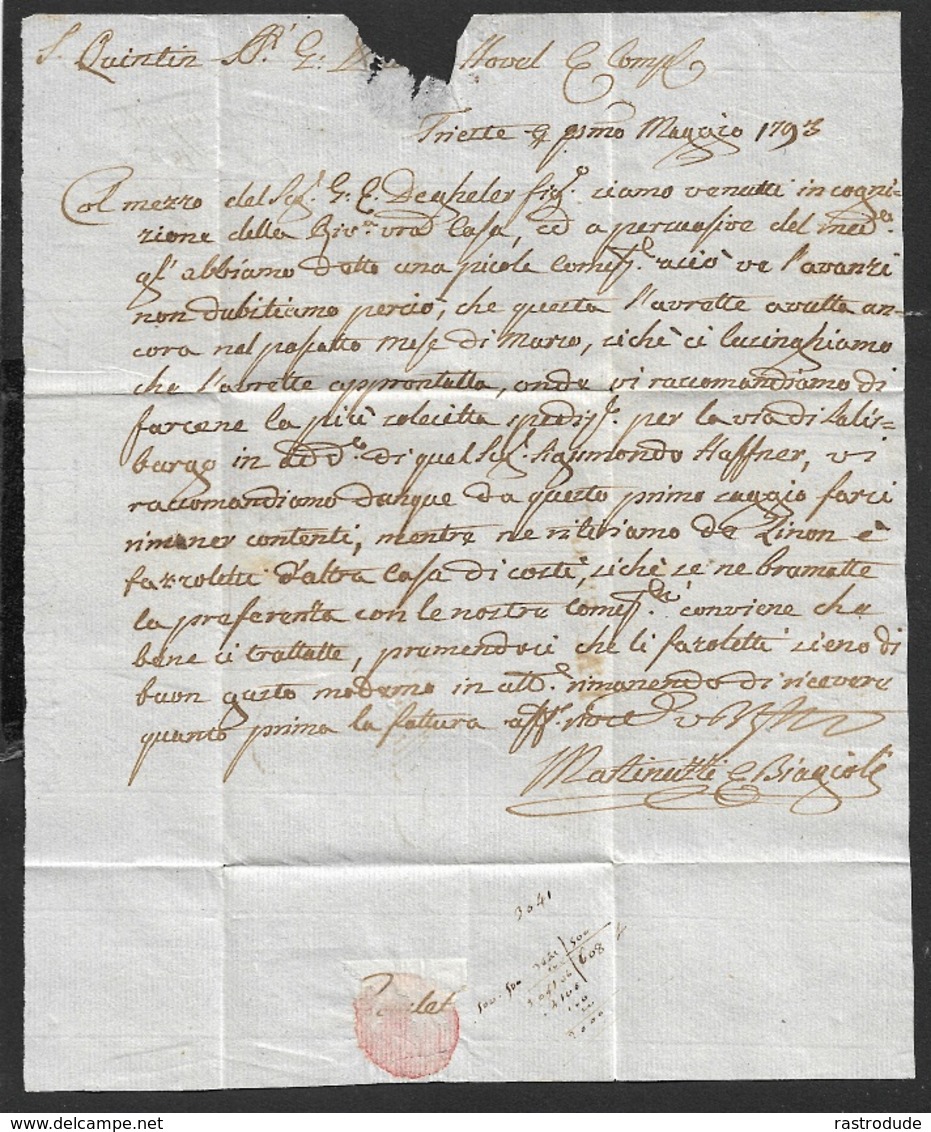 S. Quintin SSri G: Hovel & Comp.
Trieste pmo Maggio 1793
Col mezzo del Sigr. G. E. Degheler figo. siamo venutti in cogni=
zione della Rivma. vra Casa, ed a persuasive del medmo.
gl'abbiamo datto una picole Comissne. acciò ve l'avanzi
non dubitiamo perciò, che questa l'avrette avutta an=
cora nel passatto Mese di Marzo, sichè ci lusinghiamo
che l'avrette approntatta, onde vi raccomandiamo di
farcene la più solecitta spedisne. per la via di Salis=
burgo in addo. di quel Sigr. Sigmondo Haffner, vi
raccomandiamo dunque da questo primo saggio farci
rimaner contenti, mentre ne ritiriamo de Linon è
fazzoletti d'altra Casa di costì, sichè se ne bramatte
la preferenza con le nostre Comissni. conviene che
bene ci trattatte, premendoci che li fazoletti sieno di
buon gusto moderno in atto. rimanendo di ricevere
quanto prima la fattura
Martinuzzi & Biagioli
3041
500
608
3000
rastrodude